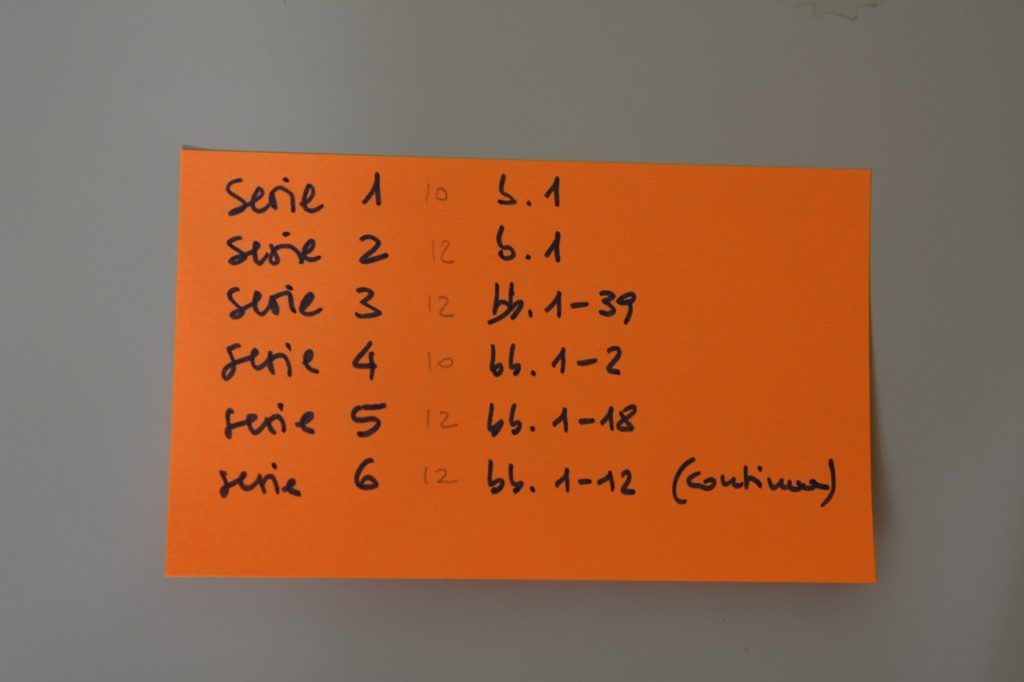 serie 1 10 b. 1
serie 2 12 b. 1
serie 3 12 bb. 1-39
serie 4 10 bb. 1-2
serie 5 12 bb. 1-18
serie 6 12 bb. 1-12 (continua)